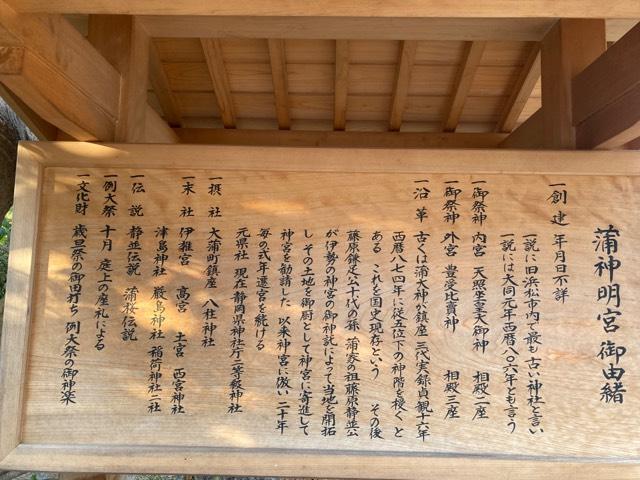 蒲神明宮 御由緒
一創 建 年月日不詳
一説に旧浜松市内で最も古い神社と言い
一説には大同元年西暦八〇六年とも言う
一御祭神 内宮 天照坐皇大御神 相殿二座
一御祭神 外宮 豊受比賣神 相殿三座
一沿 革 古くは蒲大神を鎮座 三代実録貞観十六年
西暦八七四年に従五位下の神階を授く と
ある これを国史現存という その後
藤原鎌足公十代の孫 蒲家の祖藤原静並公
が伊勢の神宮の御神託によって当地を開拓
し その土地を御厨として神宮に寄進して
神宮を勧請した 以来神宮に倣い二十年
毎の式年遷宮を続ける
元県社 現在静岡県神社庁二等級神社
一摂 社 大蒲町鎮座 八柱神社
一末 社 伊雜宮 高宮 土宮 西宮神社
津島神社 厳島神社 稲荷神社二社
一伝 説 静並伝説 蒲桜伝説
一例大祭 十月 庭上の座礼による
一文化財 歳旦祭の御田打ち 例大祭の御神楽